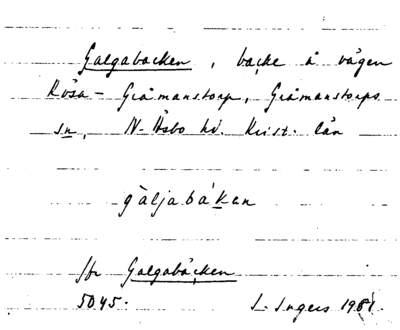 Galgabacken, backe å vägen
Kvsa - Gråmanstorp, Gråmanstorps
sn, N-Åsbo hd. Krist. län
gàljabákan
Jfr Galgabäcken
5045. I. Ingers 1961.